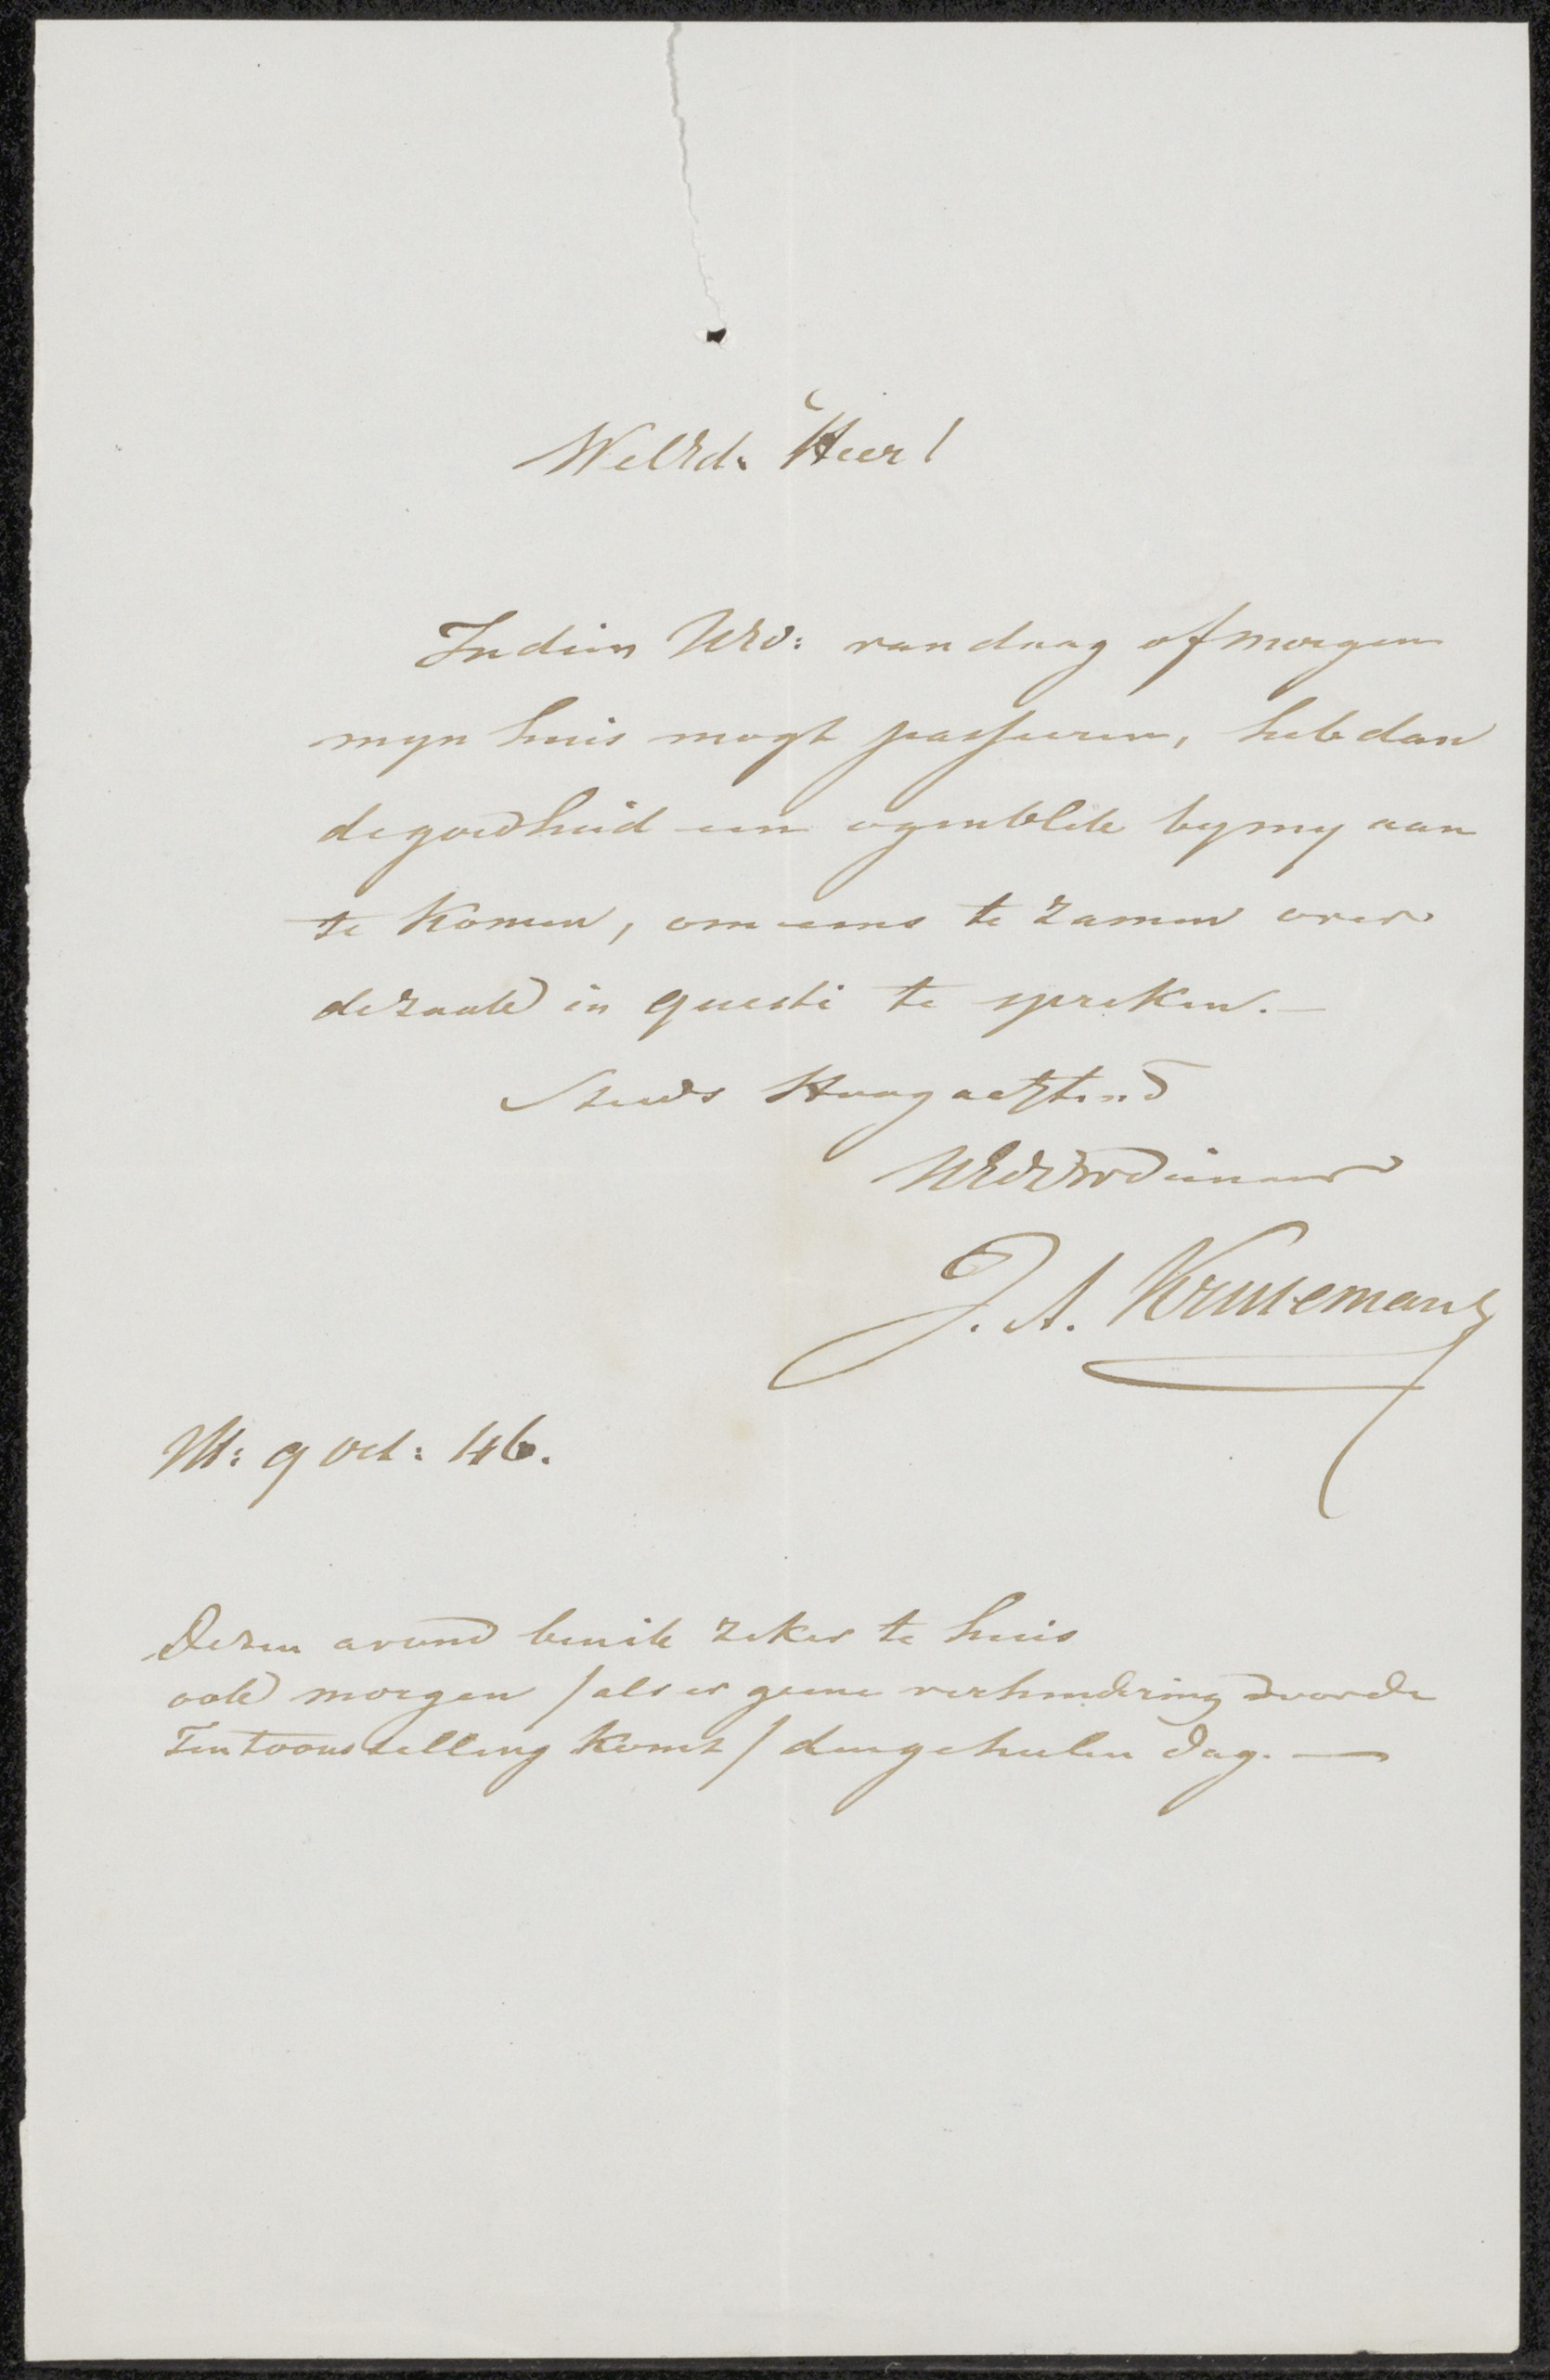 WelEd. Heer!
Indien UEd: vandaag of morgen
myn huis mogt passeeren, heb dan
de goedheid een ogenblik by my aan
te komen, om eens te zamen over
de zaak in questi te spreken. —
Steeds Hoogachtend
UEdDWDienaar
J. A. Kruseman
M: 9 Oct: 46.
Dezen avond ben ik zeker te huis
ook morgen / als er geene verhindering door de
Tentoonstelling komt / den geheelen dag. —